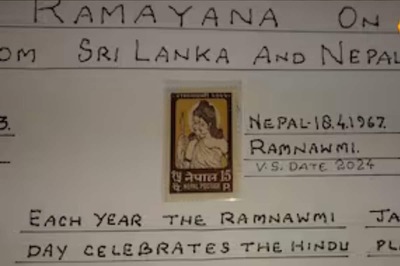 RAMAYANA ON
OM SRI LANKA AND NEPAL
3.
NEPAL-18.4.1967.
RAMNAWMI.
V.S. DATE 2024
नेपाल 15
NEPAL POSTAGE P.
EACH YEAR THE RAMNAWMI JA
DAY CELEBRATES THE HINDU PL